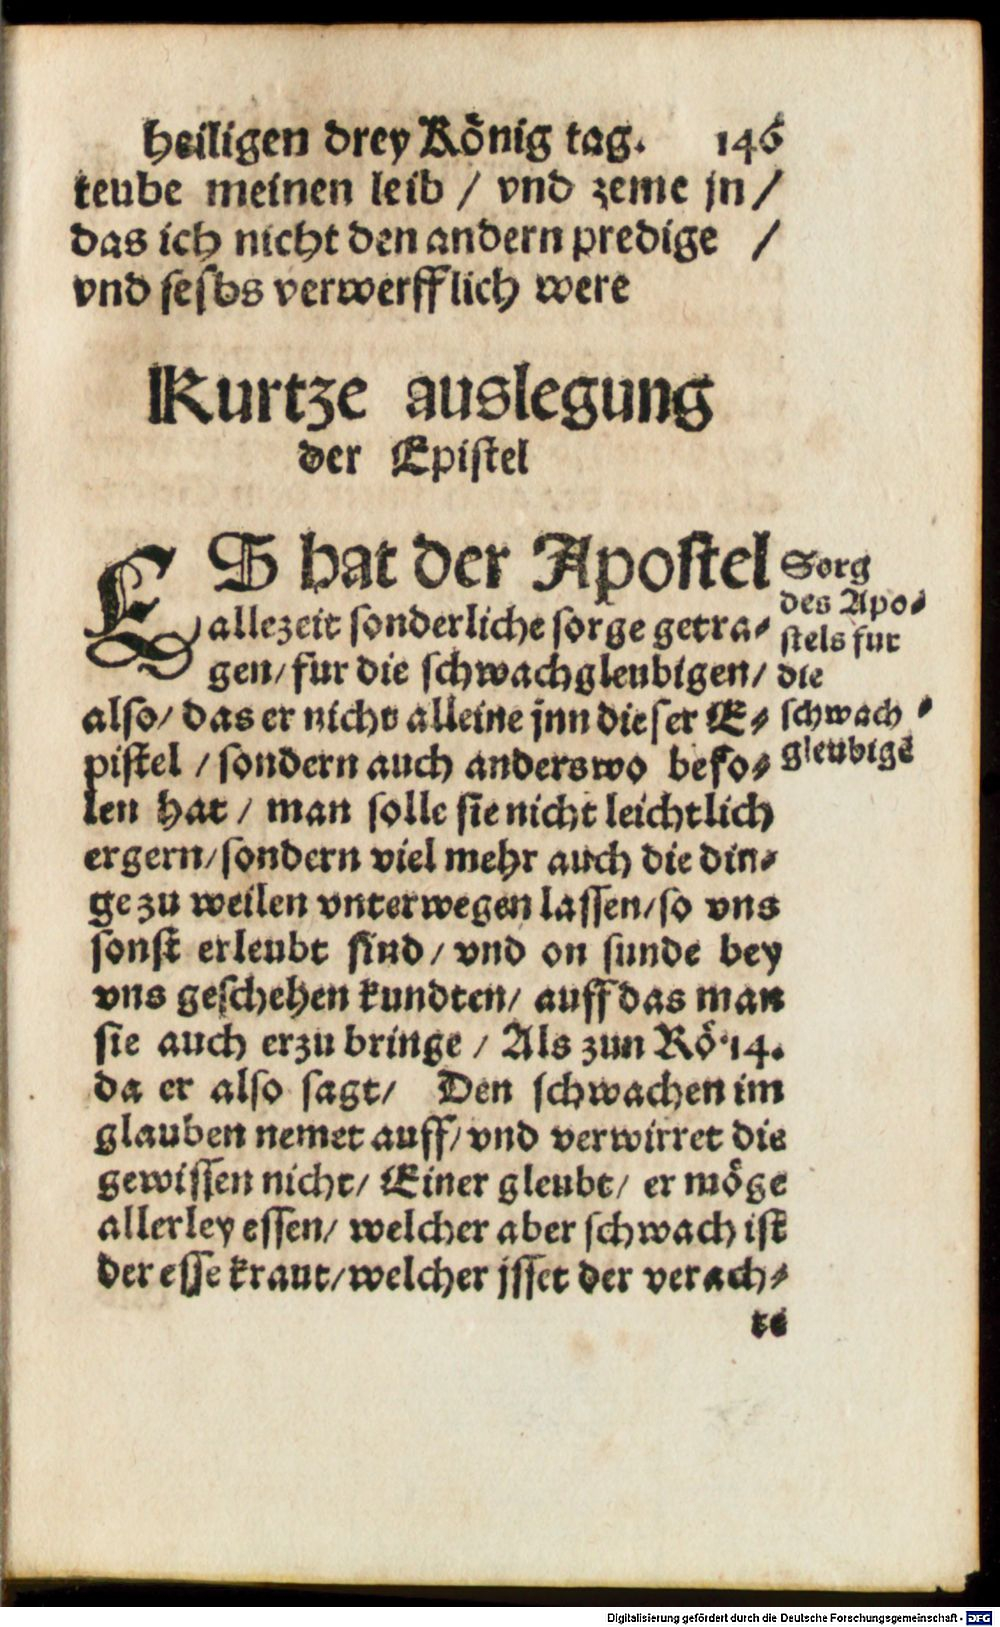 heiligen drey König tag. 146
teube meinen leib / vnd zeme jn /
das ich nicht den andern predige /
vnd sesbs verwerfflich were
Kurtze auslegung
der Epistel
ES hat der Apostel
allezeit sonderliche sorge getra⸗
gen / fur die schwachgleubigen /
also / das er nicht alleine jnn dieser E⸗
pistel / sondern auch anderswo befo⸗
len hat / man solle sie nicht leichtlich
ergern / sondern viel mehr auch die din⸗
ge zu weilen vnterwegen lassen / so vns
sonst erleubt sind / vnd on sunde bey
vns geschehen kundten / auff das man
sie auch erzu bringe / Als zun Rö. 14.
da er also sagt / Den schwachen im
glauben nemet auff / vnd verwirret die
gewissen nicht / Einer gleubt / er möge
allerley essen / welcher aber schwach ist
der esse kraut / welcher jsset der verach⸗
te
Sorg
des Apo⸗
stels fur
die
schwach⸗
gleubigē
Digitalisierung gefördert durch die Deutsche Forschungsgemeinschaft - DFG